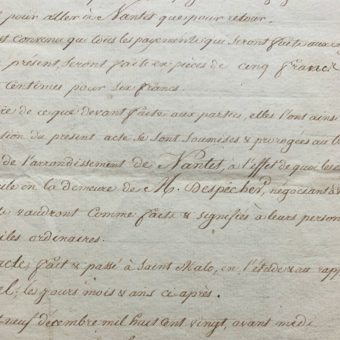 pour aller à Nantes que pour retour.
Convenu que tous les payements qui seront faits aux
present, seront faits en pièces de cinq francs
Centimes pour six francs.
de ce que devant faite aux parties, elles l'ont ainsi
tion du present acte se sont soumises & prorogées au
de l'arrondissement de Nantes, à l'effet de quoi les
en la demeure de M. Despecher, négociant
vaudront Comme faits & signifiés à leurs person
iles ordinaires.
acte, fait & passé à Saint Malo, en l'étude & au rapp
el, les jours mois & ans ci après.
neuf décembre mil huit cent vingt, avant midi